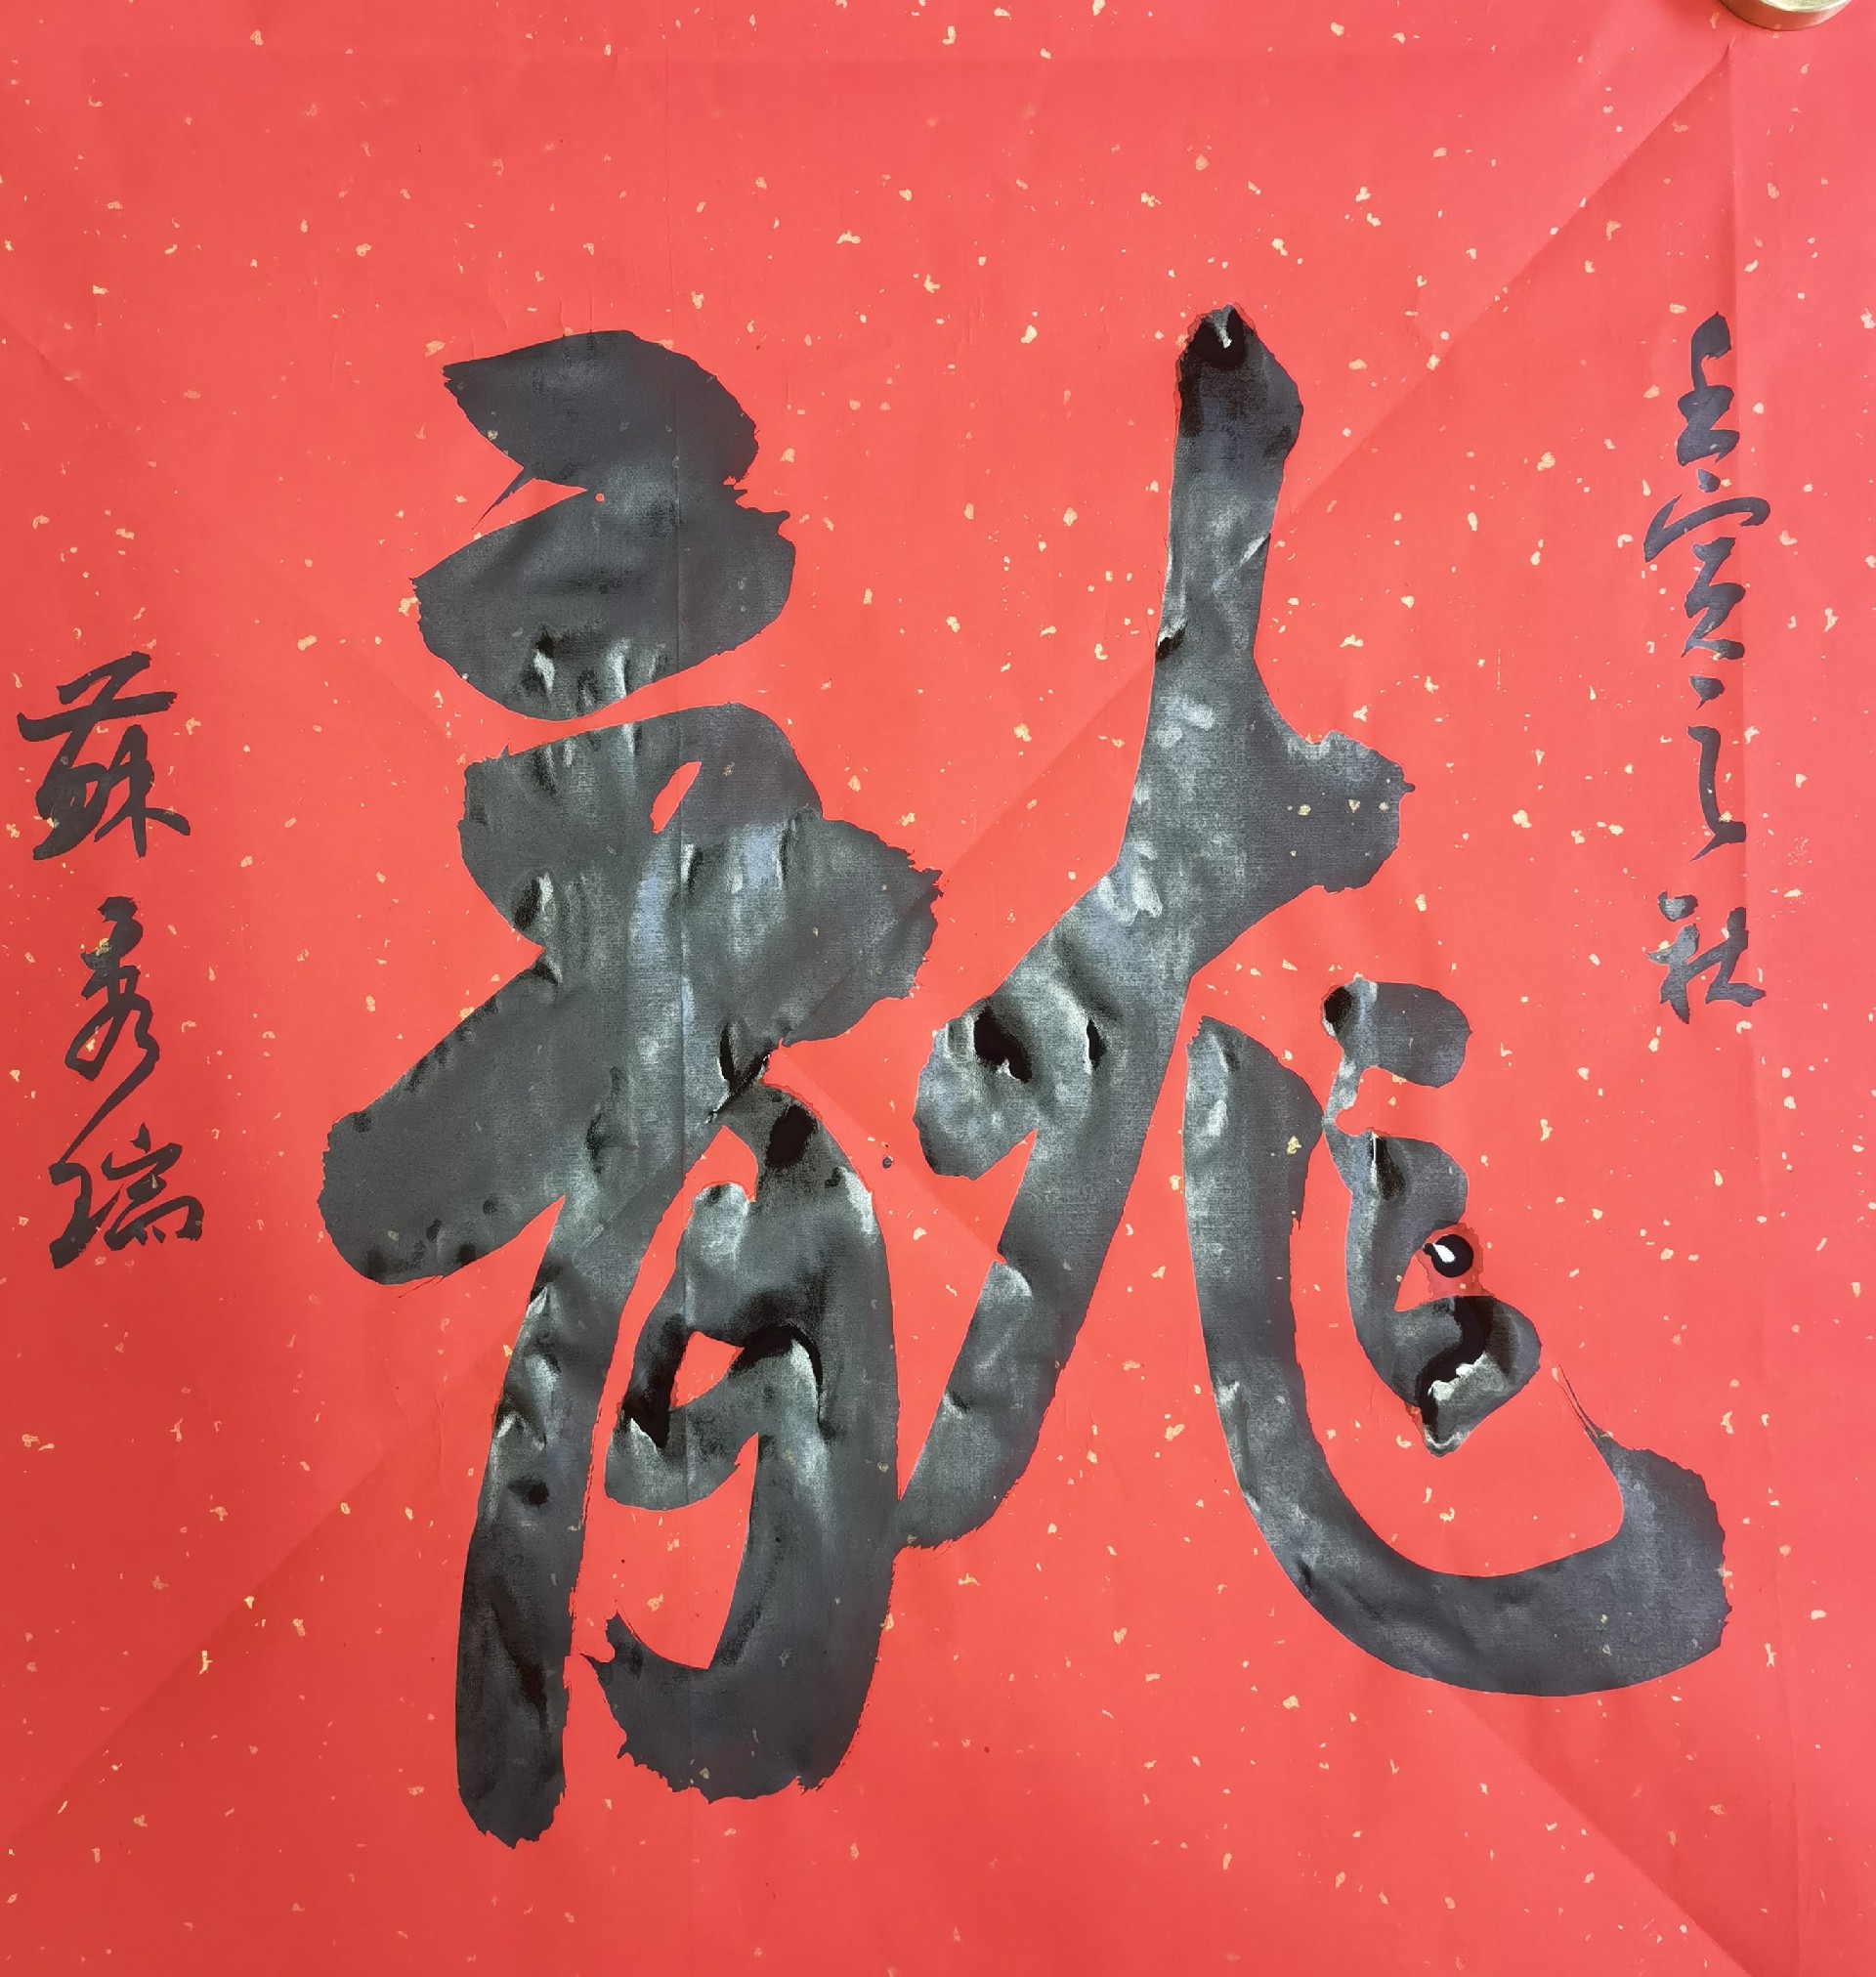 壬寅之秋
龍
蘇秀瑞